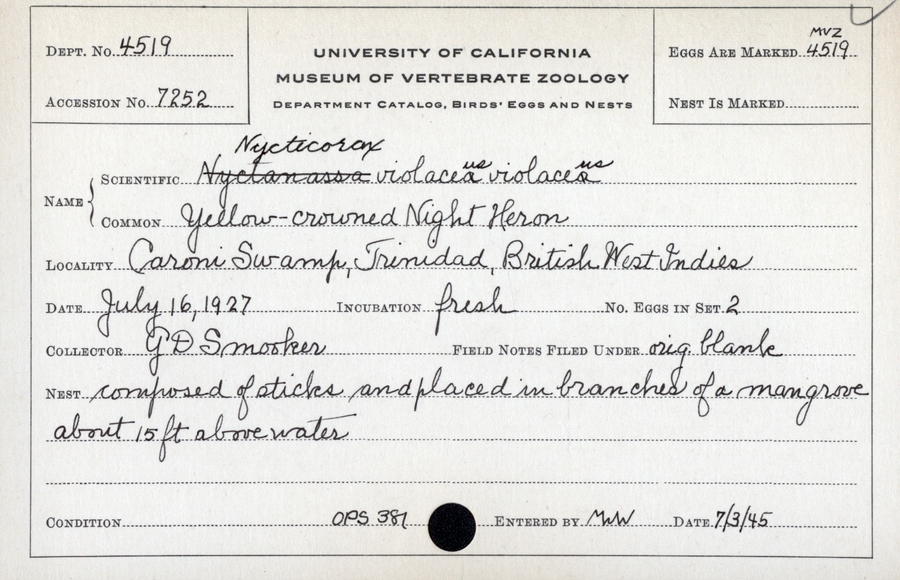 DEPT. No. 4519
UNIVERSITY OF CALIFORNIA
MUSEUM OF VERTEBRATE ZOOLOGY
DEPARTMENT CATALOG, BIRDS' EGGS AND NESTS
MVZ
EGGS ARE MARKED 4519
ACCESSION No. 7252
NEST IS MARKED
Nycticorax
us us
NAME { SCIENTIFIC Nyctanassa violacea violacea
COMMON Yellow-crowned Night Heron
LOCALITY Caroni Swamp, Trinidad, British West Indies
DATE July 16, 1927 INCUBATION fresh No. EGGS IN SET 2
COLLECTOR G D Smooker FIELD NOTES FILED UNDER orig. blank
NEST composed of sticks and placed in branches of a mangrove
about 15 ft above water
CONDITION OPS 381 ENTERED BY MWW DATE 7/3/45